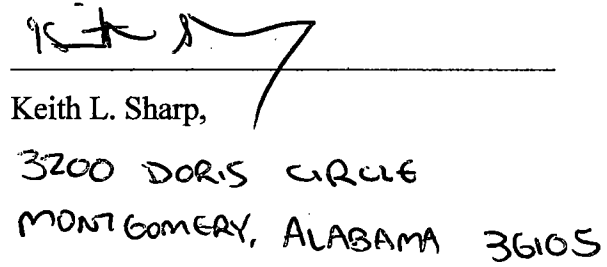 Keith S
Keith L. Sharp,
3200 DORIS CIRCLE
MONTGOMERY, ALABAMA 36105